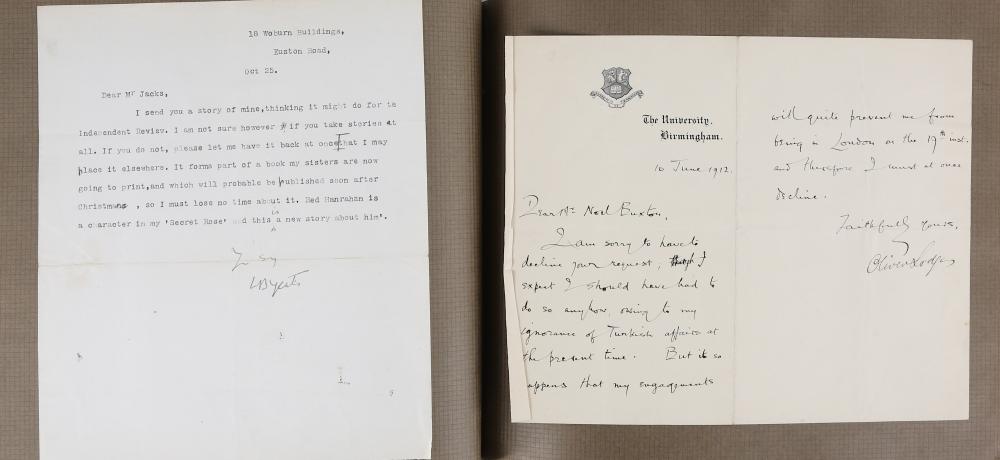 18 Woburn Buildings,
Euston Road,
Oct 25.
Dear Mr Jacks,
I send you a story of mine,thinking it might do for te
Independent Revisw. I am not sure however if you take stories at
all. If you do not, please let me have it back at once that I may
place it elsewhere. It forms part of a book my sisters are now
going to print,and which will probable be published soon after
Christmas , so I must lose no time about it. Red Hanrahan is
a character in my 'Secret Rose' and this is a new story about him'.
WB Yeats
The University,
Birmingham.
10 June 1912.
Dear Mr Noel Buxton,
I am sorry to have to
decline your request, though I
expect I should have had to
do so anyhow, owing to my
ignorance of Turkish affairs at
the present time. But it so
appens that my engagements
will quite prevent me from
being in London on the 19th inst.
and therefore I must at once
decline.
Faithfully yours,
Oliver Lodge